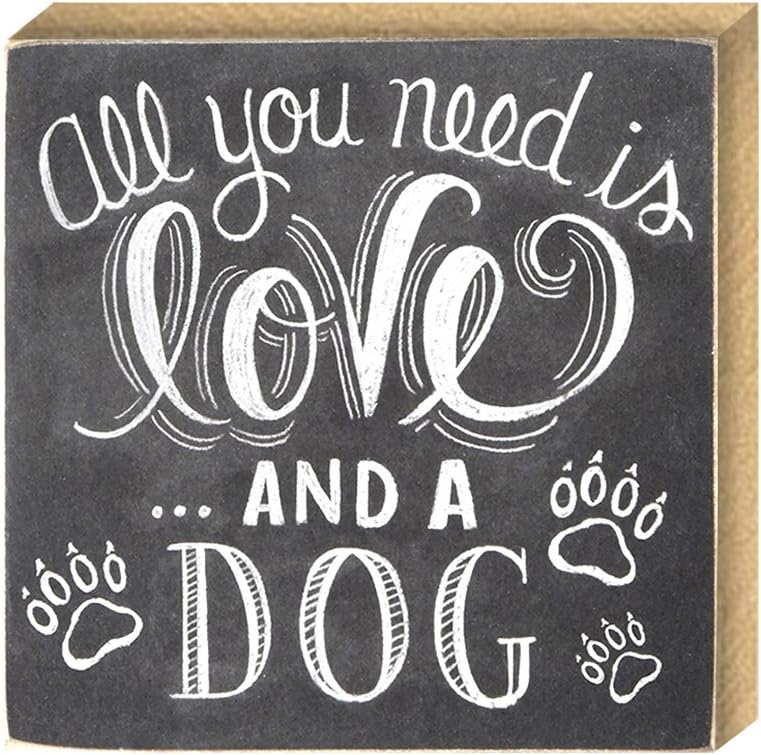 All you need is
love
... AND A
DOG